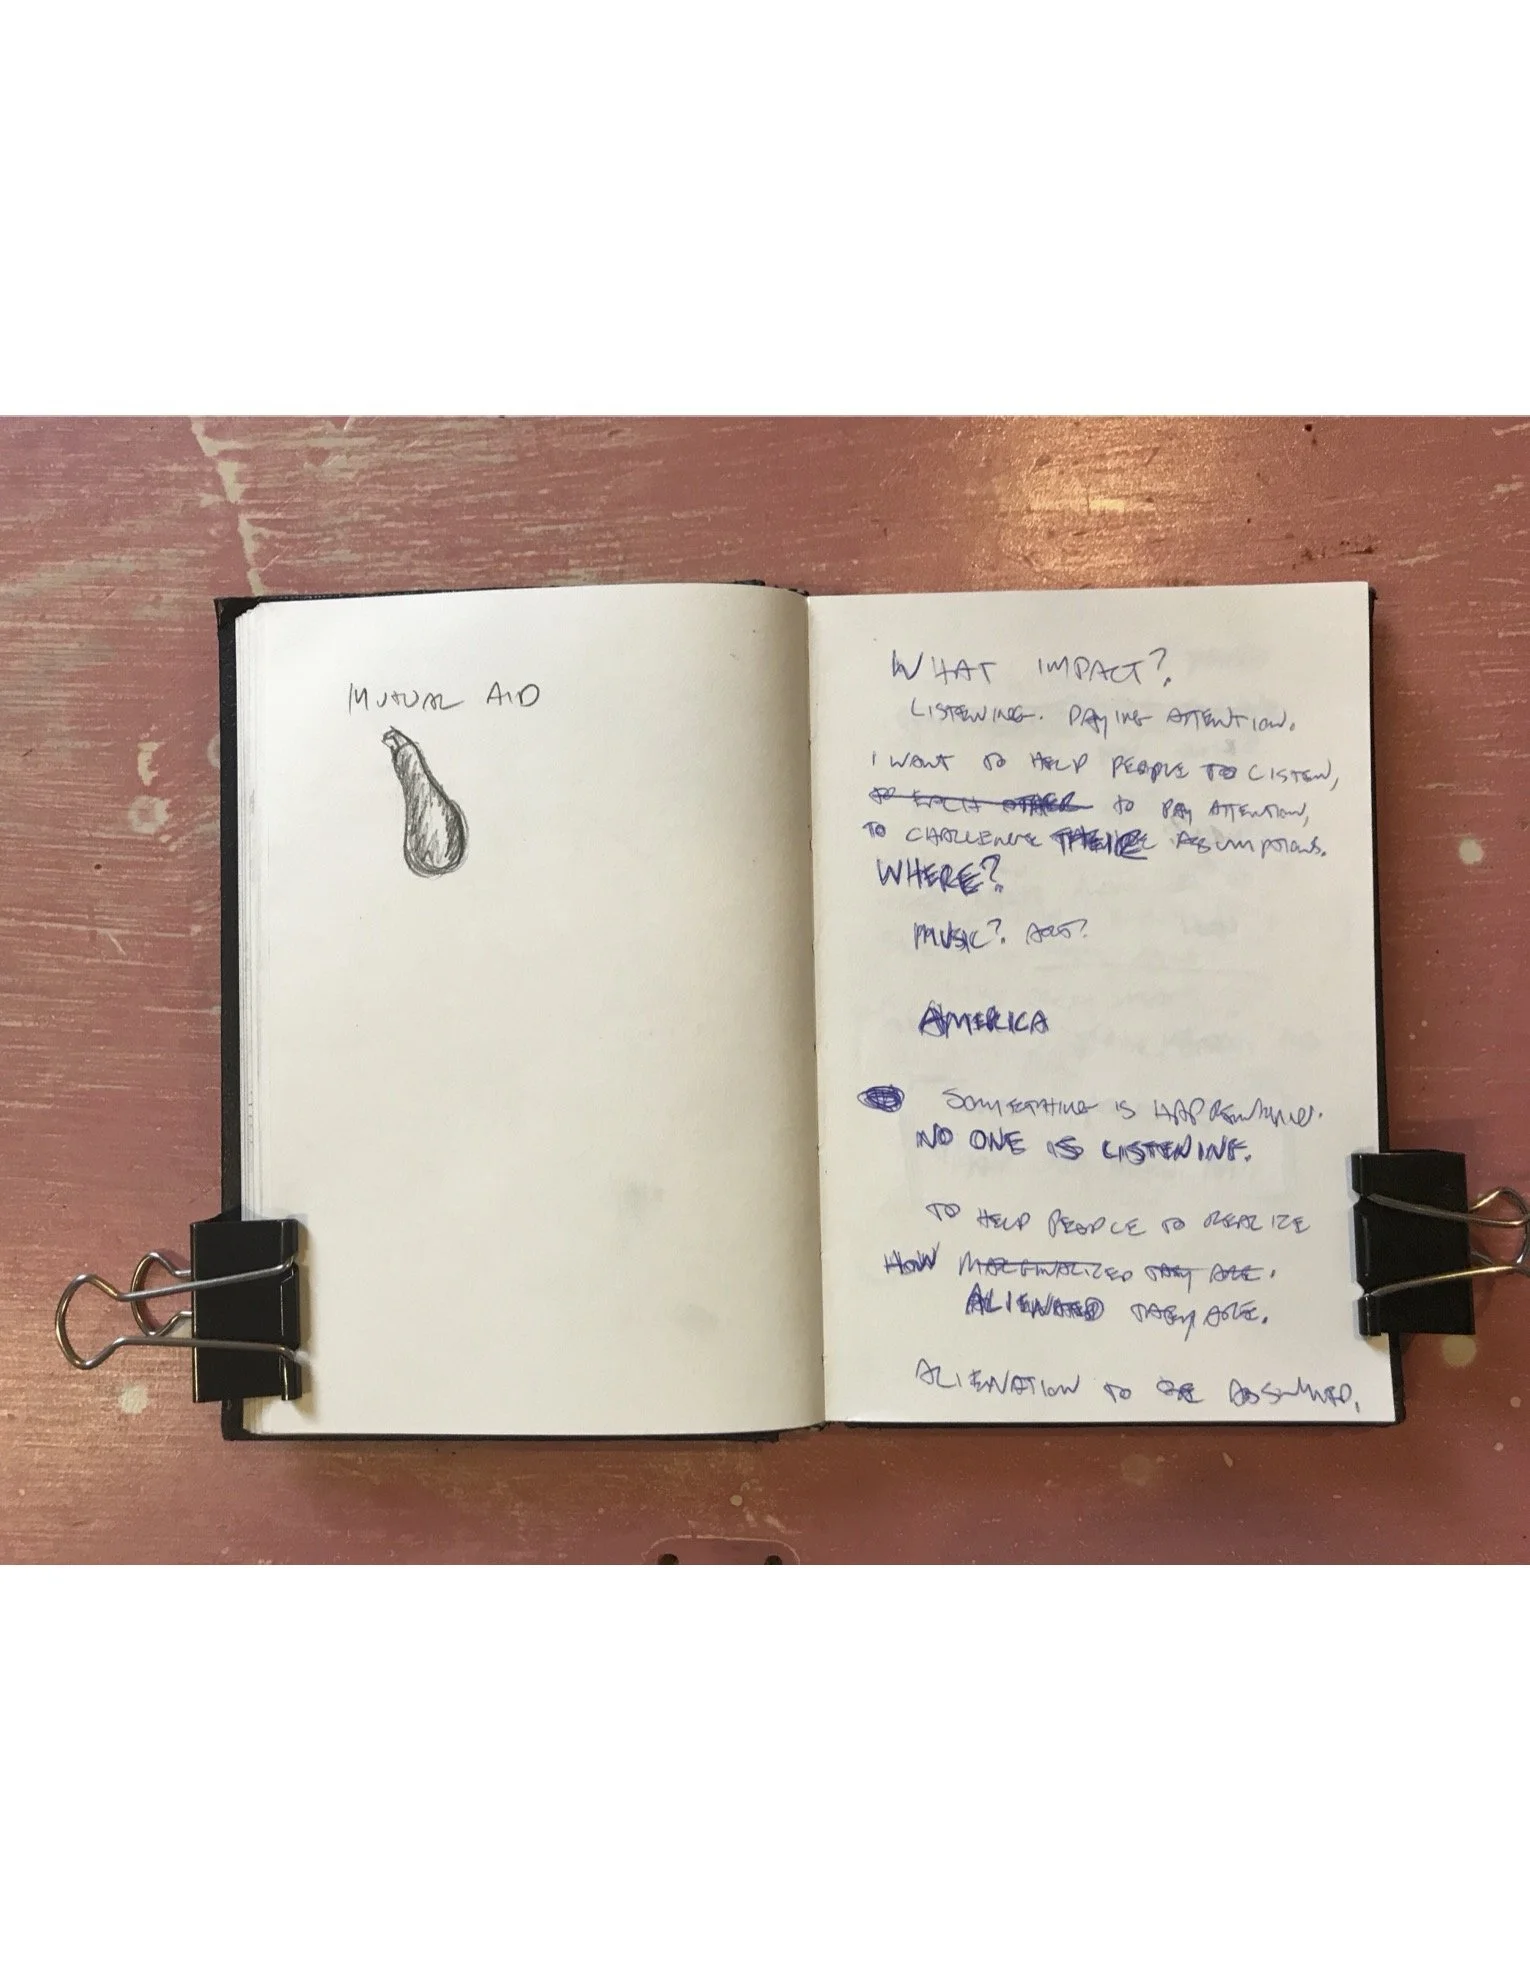 MUTUAL AID
WHAT IMPACT?
LISTENING. PAYING ATTENTION.
I WANT TO HELP PEOPLE TO LISTEN,
TO EACH OTHER TO PAY ATTENTION,
TO CHALLENGE THEIR ASSUMPTIONS.
WHERE?
MUSIC? ART?
AMERICA
SOMETHING IS HAPPENING.
NO ONE IS LISTENING.
TO HELP PEOPLE TO REALIZE
HOW MARGINALIZED THEY ARE.
ALIENATED THEY ARE.
ALIENATION TO BE ASSUMED.